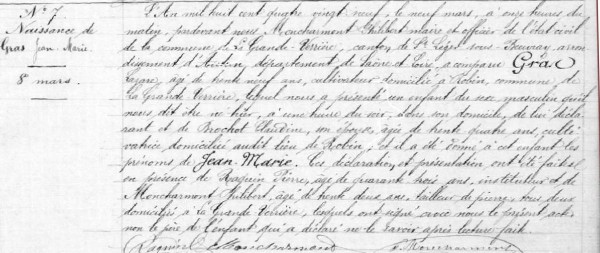 N° 7
Naissance de
Gras Jean Marie.
8 mars.
L'An mil huit cent quatre vingt neuf, le neuf mars, à onze heures du
matin, pardevant nous Moncharmont Philibert maire et officier de l'état civil
de la commune de La Grande-Verrière, canton de St Léger-sous-Beuvray, arron
dissement d'Autun, département de Saône et Loire, a comparu Gras
Lazare, âgé de trente neuf ans, cultivateur domicilié à Robin, commune de
la Grande Verrière, lequel nous a présenté un enfant du sexe masculin qu'il
nous dit être né hier, à une heure du soir, dans son domicile, de lui décla
rant et de Brochot Claudine, son épouse, âgée de trente quatre ans, culti
vatrice domiciliée audit lieu de Robin; et il a été donné à cet enfant les
prénoms de Jean-Marie. Ces déclaration et présentation ont été faites
en présence de Raquin Pierre, âgé de quarante trois ans, instituteur et de
Moncharmont Philibert, âgé de trente deux ans, tailleur de pierre, tous deux
domiciliés à la Grande Verrière, lesquels ont signé avec nous le présent acte
non le père de l'enfant qui a déclaré ne le savoir après lecture faite.
Raquin Moncharmont Moncharmont